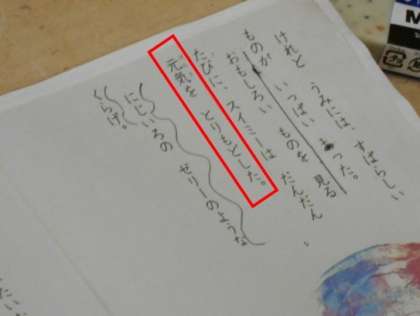 けれど うみには、すばらしい
ものが いっぱい あった。
おもしろい ものを 見る
たびに、スイミーは だんだん
元気を とりもどした。
にじいろの ゼリーのような
くらげ。
M